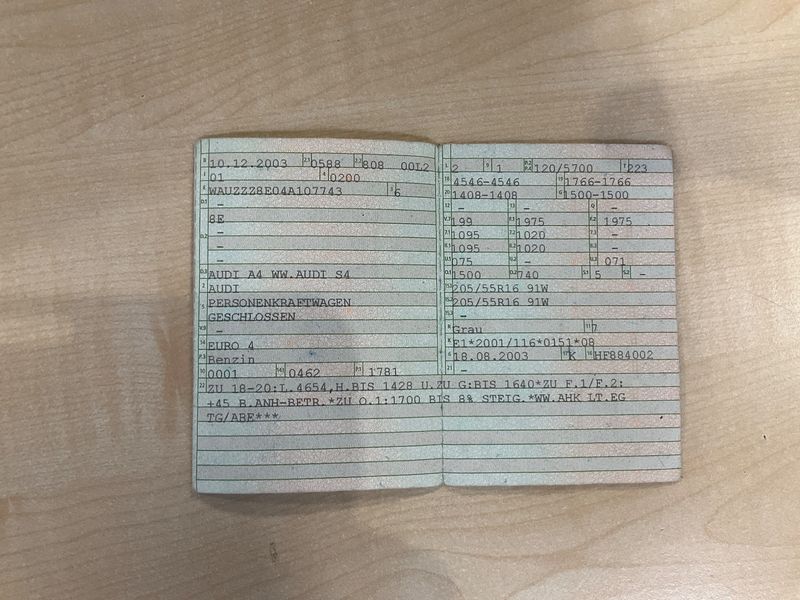 B 10.12.2003 2.1 0588 2.2 808 00L2
J 01 4 0200
E WAUZZZ8E04A107743 3 6
D.1 -
8E
D.2 -
-
-
D.3 AUDI A4 WW.AUDI S4
2 AUDI
5 PERSONENKRAFTWAGEN
GESCHLOSSEN
V.9 -
14 EURO 4
P.3 Benzin
10 0001 14.1 0462 P.1 1781
L 2 9 1 P.2 P.4 120/5700 T 223
18 4546-4546 19 1766-1766
20 1408-1408 G 1500-1500
12 - 13 - Q -
V.7 199 F.1 1975 F.2 1975
7.1 1095 7.2 1020 7.3 -
8.1 1095 8.2 1020 8.3 -
U.1 075 U.2 - U.3 071
O.1 1500 O.2 740 S.1 5 S.2 -
15.1 205/55R16 91W
15.2 205/55R16 91W
15.3 -
R Grau 11 7
K E1*2001/116*0151*08
6 18.08.2003 17 K 16 HF884002
21 -
22 ZU 18-20:L.4654,H.BIS 1428 U.ZU G:BIS 1640*ZU F.1/F.2:
+45 B.ANH-BETR.*ZU O.1:1700 BIS 8% STEIG.*WW.AHK LT.EG
TG/ABE***